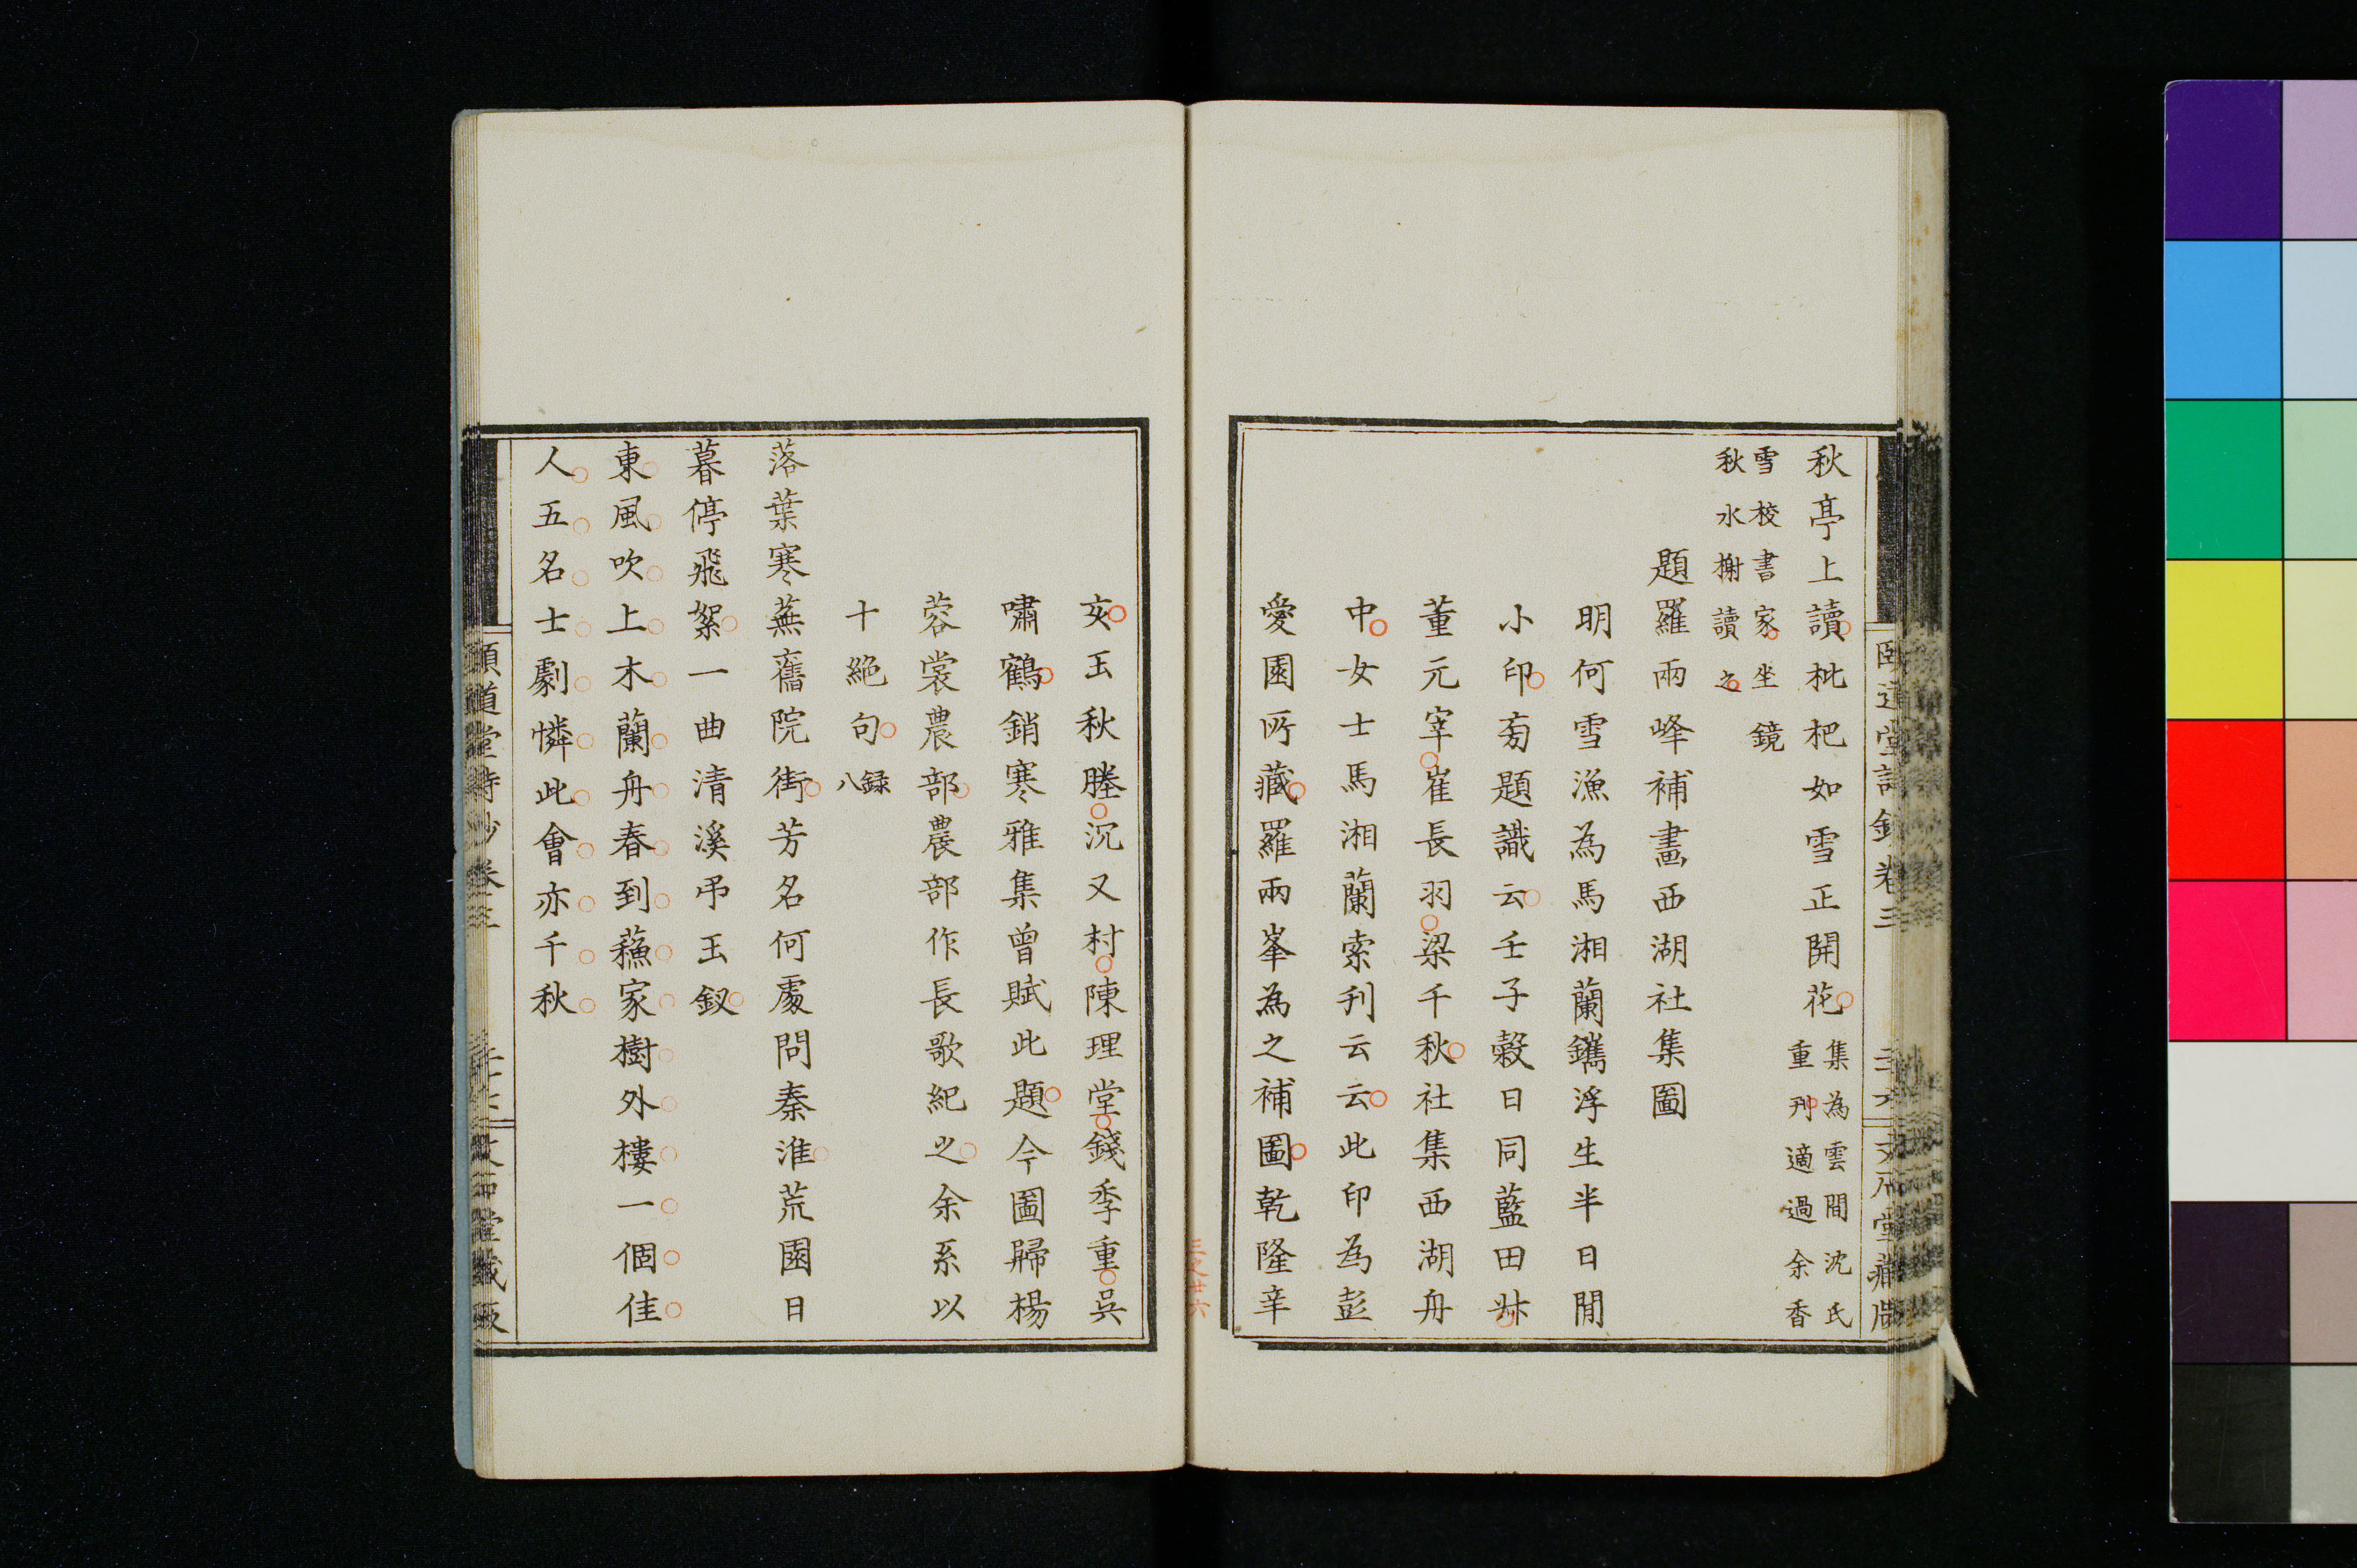 秋亭上讀枇杷如雪正開花
集為雲間沈氏
重刊適過余香
雪校書家坐鏡
秋水榭讀之
題羅兩峰補畫西湖社集圖
明何雪漁為馬湘蘭鐫浮生半日閒
小印旁題識云壬子穀日同藍田叔
董元宰崔長羽梁千秋社集西湖舟
中女士馬湘蘭索刊云云此印為彭
愛園所藏羅兩峯為之補圖乾隆辛
亥玉秋塍沉又村陳理堂錢季重吳
嘯鶴銷寒雅集曾賦此題今圖歸楊
蓉裳農部農部作長歌紀之余系以
十絕句
錄八
落葉寒蕪舊院街芳名何處問秦淮荒園日
暮停飛絮一曲清溪弔玉釵
東風吹上木蘭舟春到蘇家樹外樓一個佳
人五名士劇憐此會亦千秋
頤道堂詩鈔卷三
三之廿六